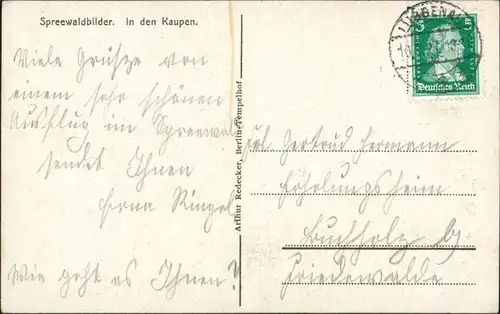 Spreewaldbilder. In den Kaupen.
Viele Grüsze von
einem sehr schönen
Ausflug im Spreewald
sendet Ihnen
Erna Ringel
Wie geht es Ihnen?
Arthur Redecker, Berlin-Tempelhof
LÜBBENAU
5
5
Deutsches Reich
Gertrud Hermann
Erholungsheim
Buchholz b/
Friedewalde